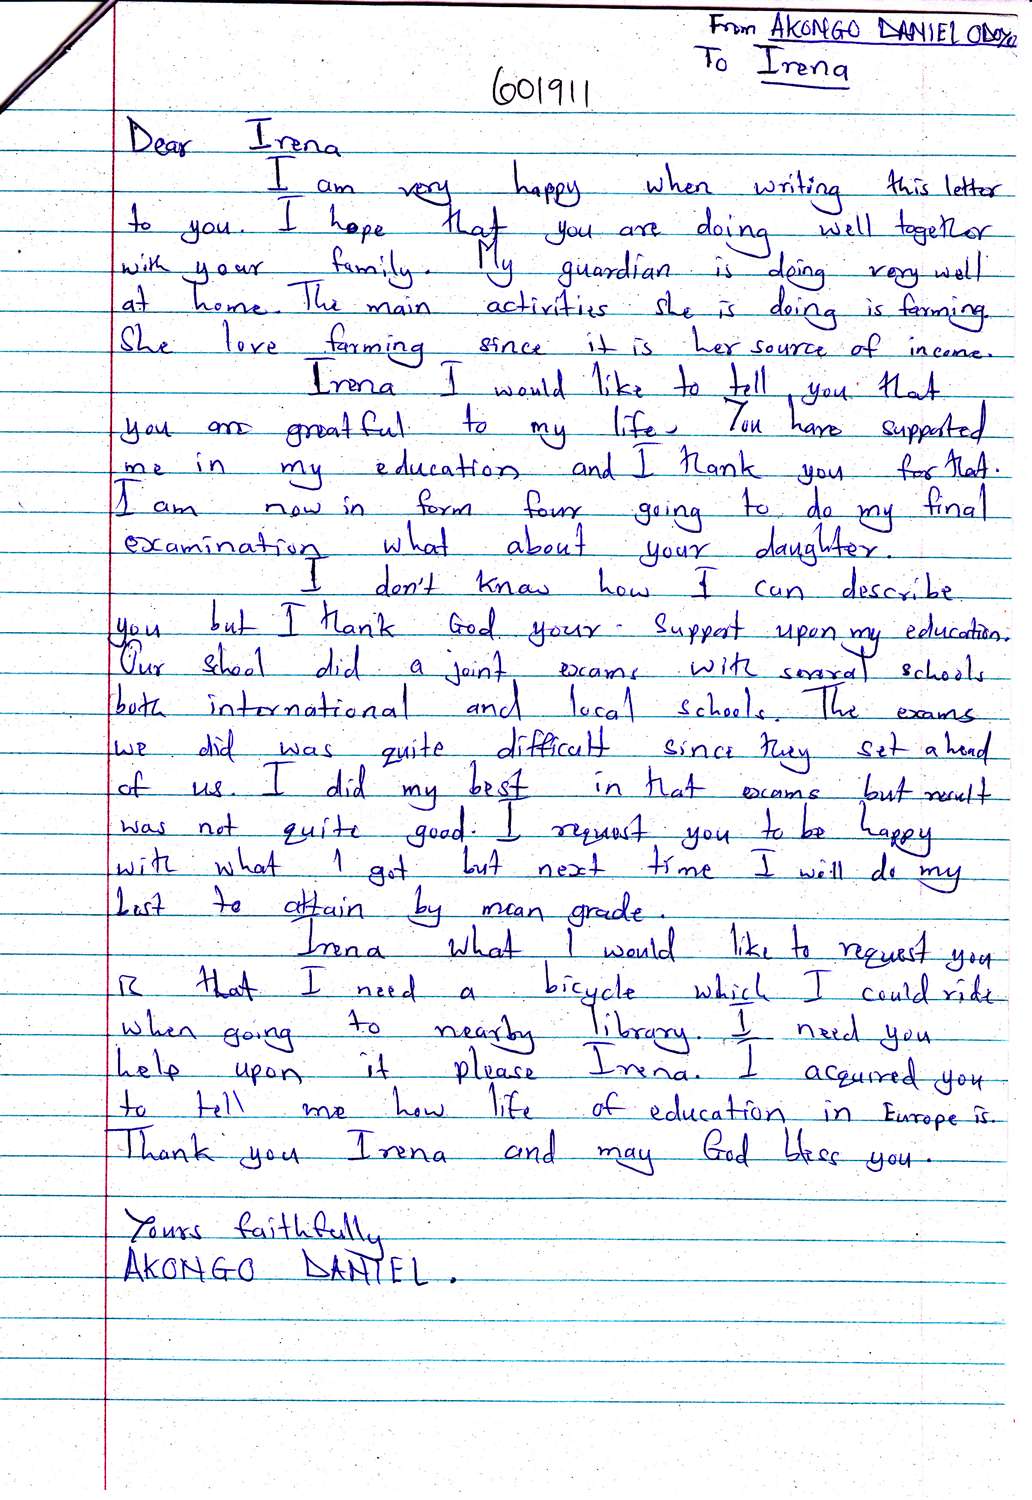 From AKONGO DANIEL
To Irena
601911
Dear Irena
I am very happy when writing this letter
to you. I hope that you are doing well together
with your family. My guardian is doing very well
at home. The main activities she is doing is farming.
She love farming since it is her source of income.
Irena I would like to tell you that
you are greatful to my life. You have supported
me in my education and I thank you for that.
I am now in form four going to do my final
examination what about your daughter.
I don't know how I can describe
you but I thank God your support upon my education.
Our school did a joint exams with several schools
both international and local schools. The exams
we did was quite difficult since they set ahead
of us. I did my best in that exams but result
was not quite good. I request you to be happy
with what I got but next time I will do my
best to attain by mean grade.
Irena what I would like to request you
is that I need a bicycle which I could ride
when going to nearby library. I need you
help upon it please Irena. I acquired you
to tell me how life of education in Europe is.
Thank you Irena and may God bless you.
Yours faithfully
AKONGO DANIEL.